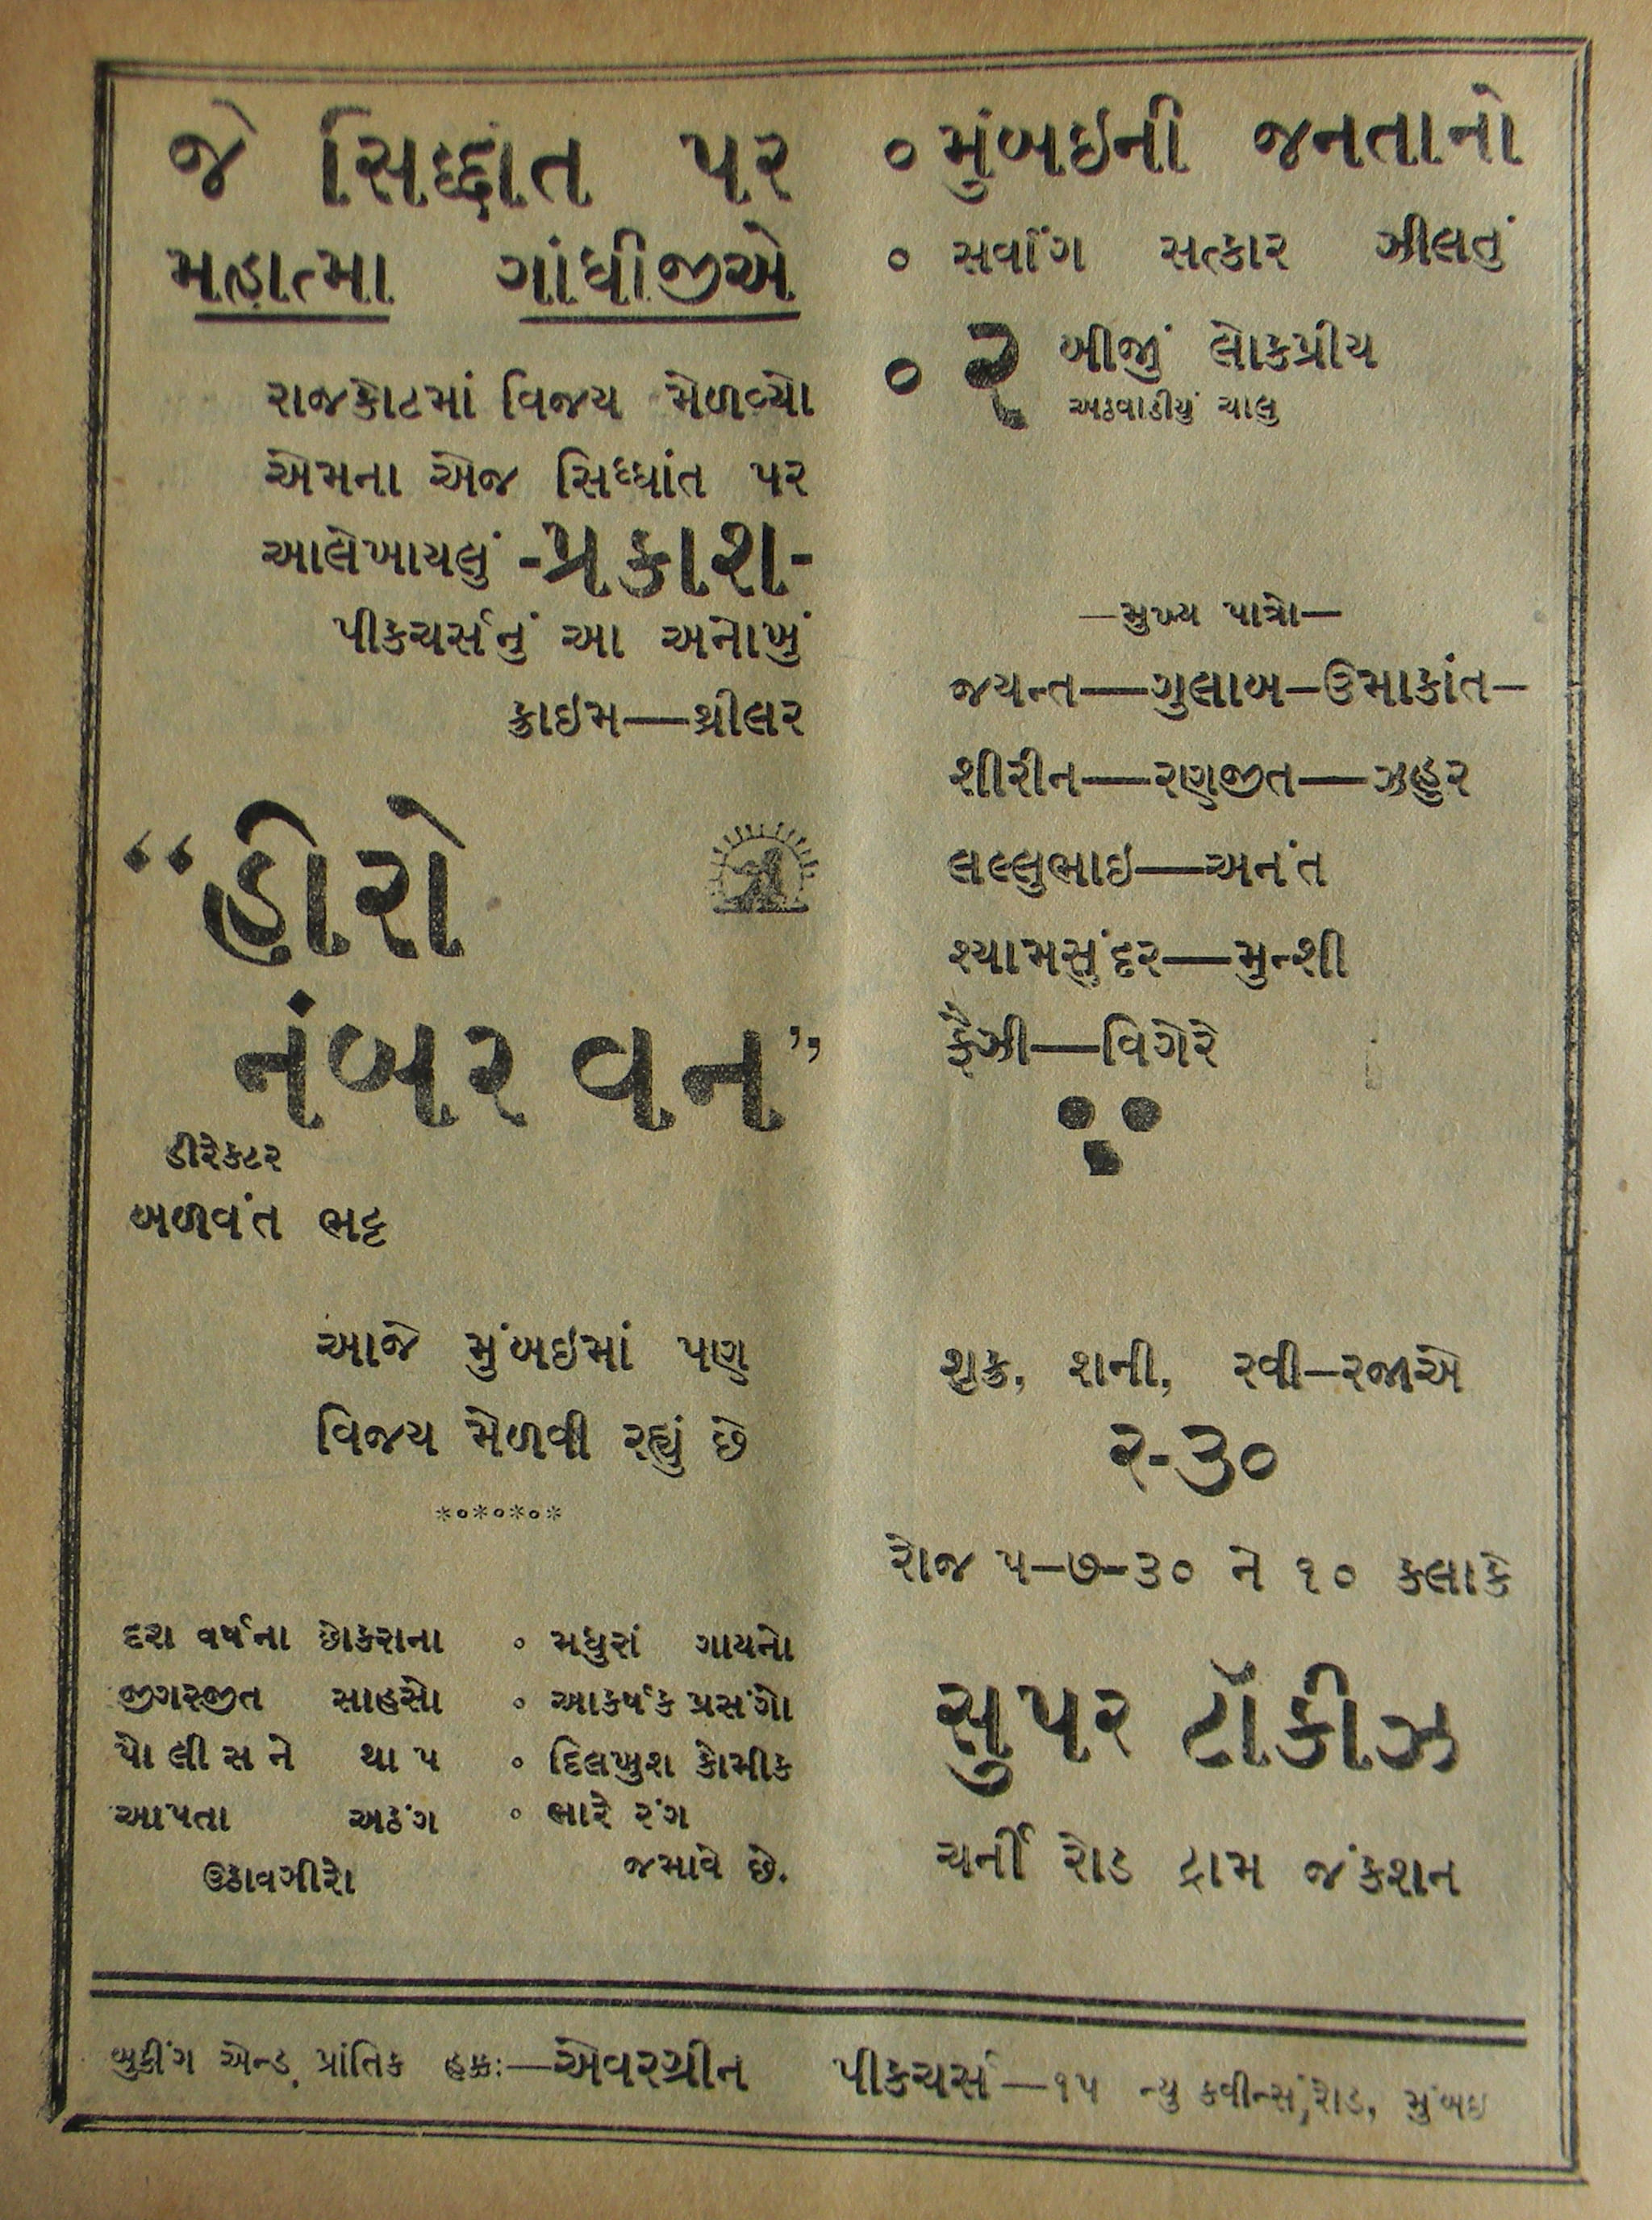 જે સિદ્ધાંત પર
મહાત્મા ગાંધીજીએ
રાજકોટમાં વિજય મેળવ્યો
એમના એજ સિધ્ધાંત પર
આલેખાયલું -પ્રકાશ-
પીકચર્સનું આ અનોખું
ક્રાઇમ—થ્રીલર
“હીરો
નંબર વન”
ડીરેકટર
બળવંત ભટ્ટ
આજે મુંબઇમાં પણ
વિજય મેળવી રહ્યું છે
*०*०*०*
દશ વર્ષના છોકરાના
જીગરજીત સાહસો
પોલીસને થાપ
આપતા અઠંગ
ઉઠાવગીરો
० મધુરાં ગાયનો
० આકર્ષક પ્રસંગો
० દિલખુશ કોમીક
० ભારે રંગ
જમાવે છે.
० મુંબઇની જનતાનો
० સર્વાંગ સત્કાર ઝીલતું
० ૨ બીજું લોકપ્રીય
અઠવાડીયું ચાલુ
—મુખ્ય પાત્રો—
જયન્ત—ગુલાબ—ઉમાકાંત—
શીરીન—રણજીત—ઝહુર
લલ્લુભાઇ—અનંત
શ્યામસુંદર—મુન્શી
ફૈઝી—વિગેરે
શુક્ર, શની, રવી—રજાએ
૨-૩૦
રોજ ૫—૭-૩૦ ને ૧૦ કલાકે
સુપર ટૉકીઝ
ચર્ની રોડ ટ્રામ જંકશન
બુકીંગ એન્ડ પ્રાંતિક હક્ક:—એવરગ્રીન પીકચર્સ—૧૫ ન્યુ કવીન્સ રોડ, મુંબઇ